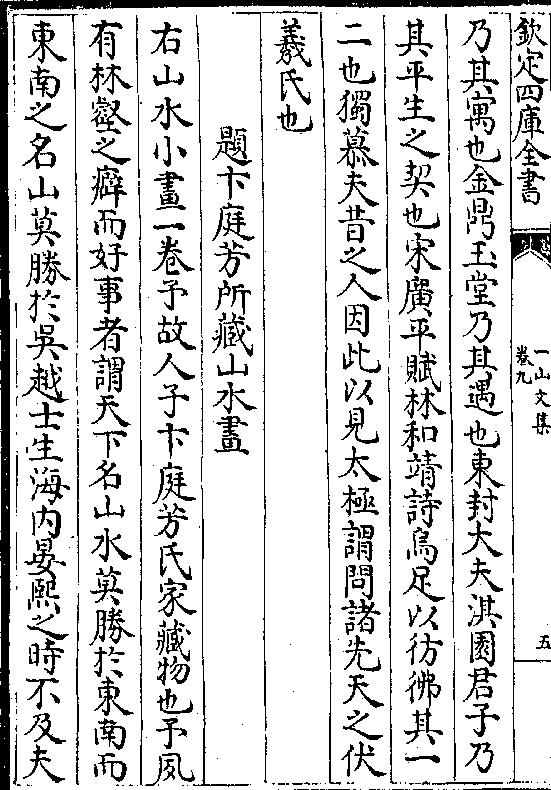 欽定四庫全書
一山文集
卷九
五
乃其寓也金鼎玉堂乃其遇也東封大夫淇園君子乃
其平生之契也宋廣平賦林和靖詩烏足以彷彿其一
二也獨慕夫昔之人因此以見太極謂問諸先天之伏
羲氏也
題卞庭芳所藏山水畫
右山水小畫一卷予故人子卞庭芳氏家藏物也予夙
有林壑之癖而好事者謂天下名山水莫勝於東南而
東南之名山莫勝於吳越士生海内晏熙之時不及夫